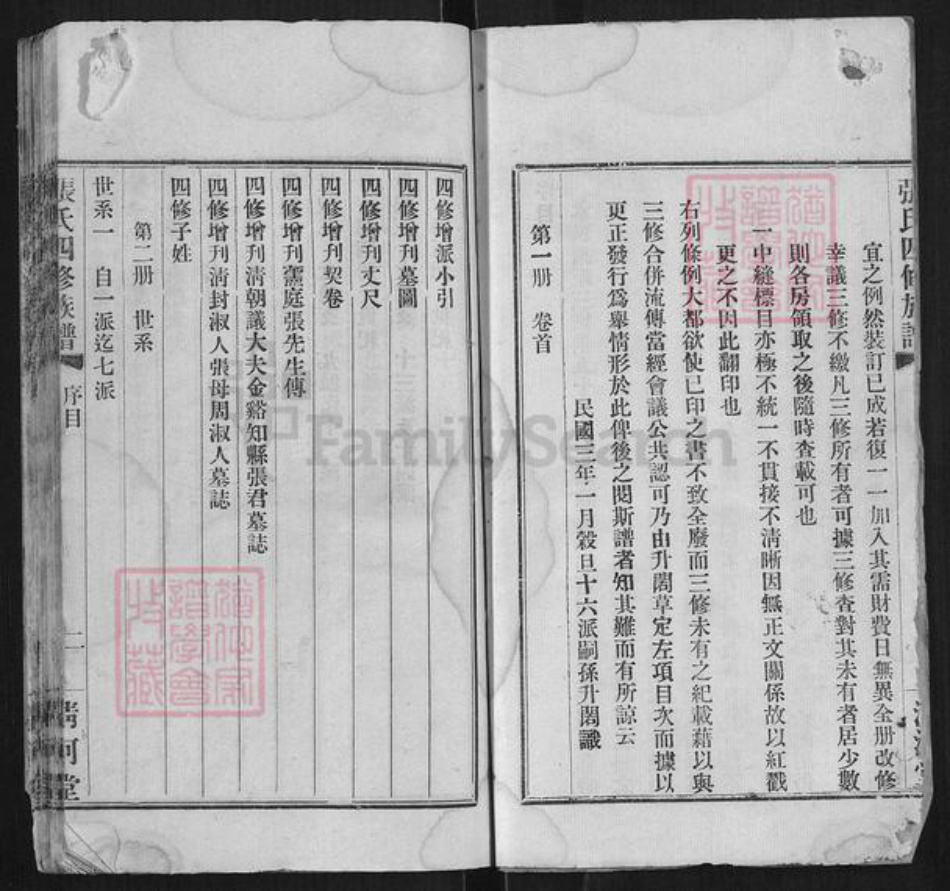 張氏四修族譜
宜之例然裝訂已成若復一一加入其需財費日無異全册改修
幸議三修不繳凡三修所有者可據三修查對其未有者居少數
則各房領取之後隨時查載可也
一中縫標目亦極不統一不貫接不清晰因無正文關係故以紅戳
更之不因此翻印也
右列條例大都欲使已印之書不致全廢而三修未有之紀載藉以與
三修合併流傳當經會議公共認可乃由升閎草定左項目次而據以
更正發行爲舉情形於此俾後之閱斯譜者知其難而有所諒云
民國三年一月穀旦十六派嗣孫升閎識
第一册 卷首
四修增派小引
四修增刋墓圖
四修增刋丈尺
四修增刋契卷
四修增刋靈庭張先生傳
四修增刋淸朝議大夫金谿知縣張君墓誌
四修增刋淸封淑人張母周淑人墓誌
四修子姓
第二册 世系
世系一 自一派迄七派
張氏四修族譜 序目 二 淸河堂
FamilySearch